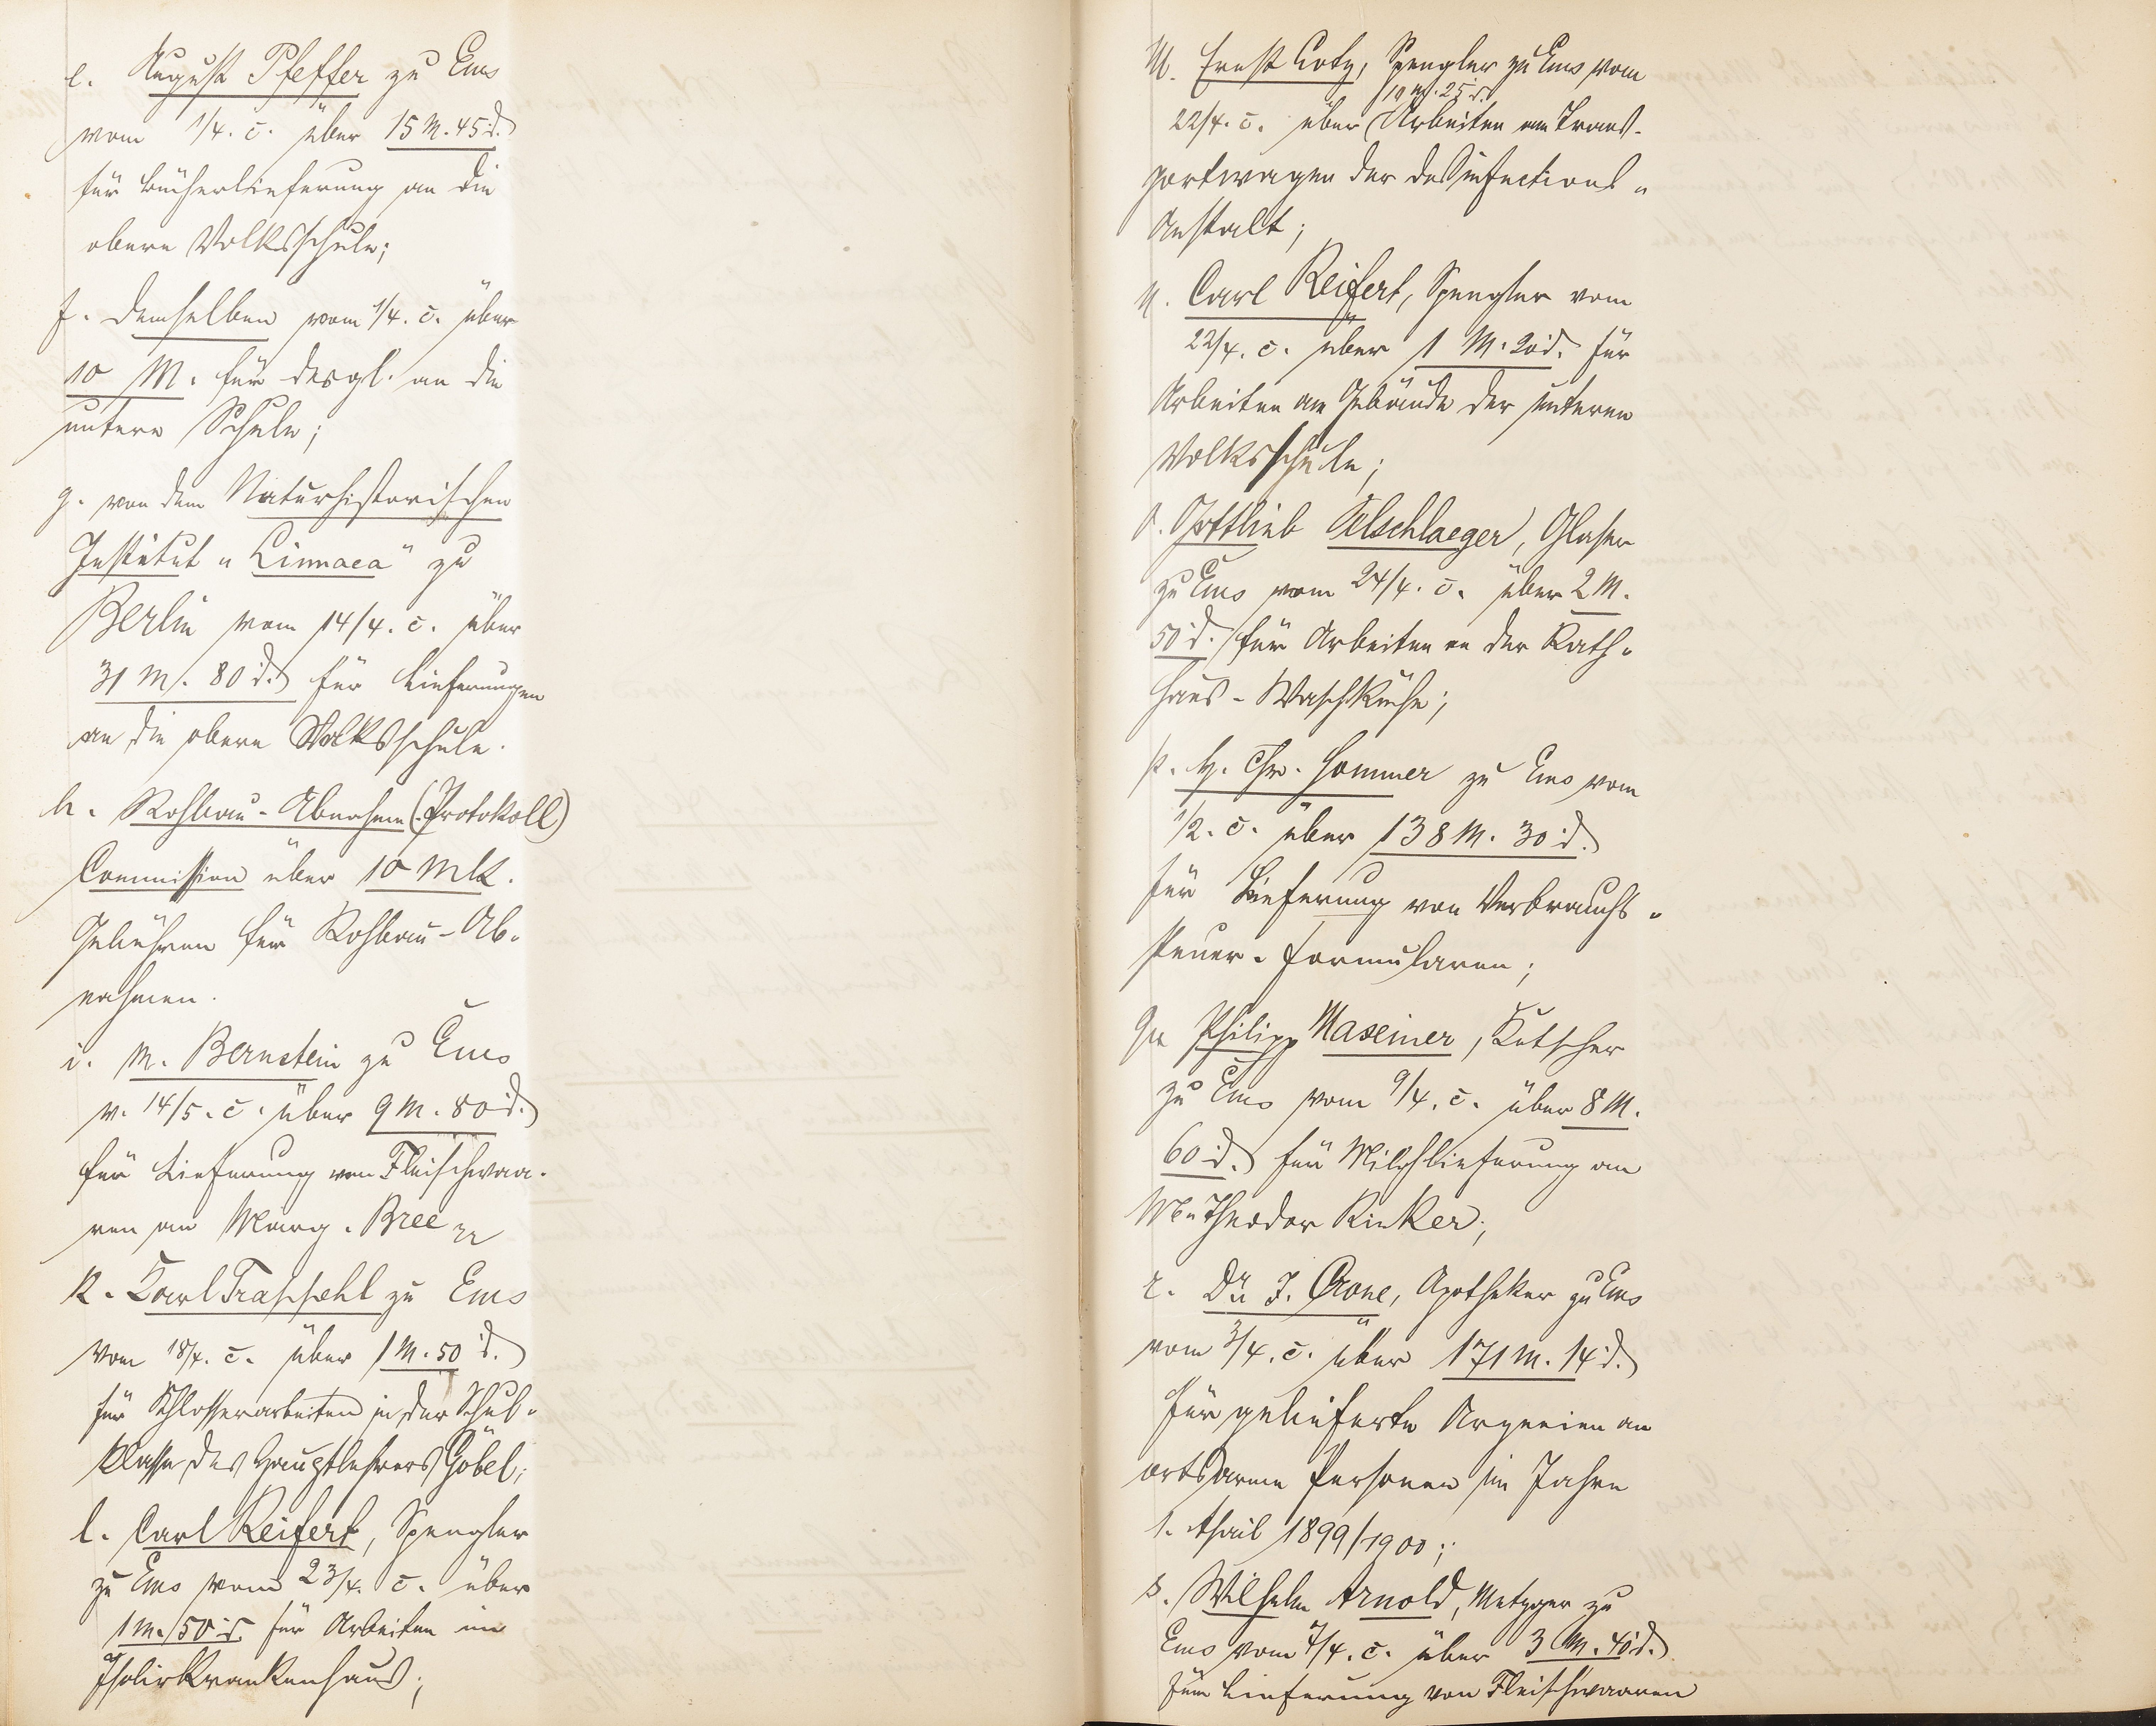 e. August Pfeffer zu Ems
vom 1/4. c. über 15 M. 45 d.
für Bücherlieferung an die
obere Volksschule;
f. Demselben vom 1/4. c. über
10 M. für desgl. an die
untere Schule;
g. von dem Naturhistorischen
Institut „Linnaea" zu
Berlin vom 14/4. c. über
31 M. 80 d. für Lieferungen
an die obere Volksschule.
h. Rohbau-Abnahme (Protokoll)
Commission über 10 Mk.
Gebühren für Rohbau-Ab-
nahmen.
i. M. Bernstein zu Ems
v. 14/5. c. über 9 M. 80 d.
für Lieferung von Fleischwaa-
ren an Marg. Bree
k. Karl Trappehl zu Ems
vom 18/4. c. über 1 M. 50 d.
für Schlosserarbeiten in der Schul-
klasse des Hauptlehrers Göbel;
l. Carl Reifert, Spengler
zu Ems vom 23/4. c. über
1 M. 50 d. für Arbeiten im
Isolirkrankenhaus;
M. Ernst Loty, Spengler zu Ems vom
10 M. 25 d.
22/4. c. über Arbeiten am Trans-
portwagen der Desinfections-
Anstalt;
n. Carl Reifert, Spengler vom
22/4. c. über 1 M. 20 d. für
Arbeiten am Gebäude der unteren
Volksschule;
o. Gottlieb Oelschlaeger, Glaser
zu Ems vom 24/4. c. über 2 M.
50 d. für Arbeiten an der Rath-
haus-Waschküche;
p. H. Chr. Sommer zu Ems vom
1/2. c. über 138 M. 30 d.
für Lieferung von Verbrauchs-
steuer-Formularen;
q. Philipp Maxeiner, Kutscher
zu Ems vom 9/4. c. über 8 M.
60 d. für Milchlieferung an
Theodor Rinker;
r. Dr. J. Crone, Apotheker zu Ems
vom 3/4. c. über 171 M. 14 d.
für gelieferte Arzneien an
ortsarme Personen im Jahre
1. April 1899/1900;
s. Wilhelm Arnold, Metzger zu
Ems vom 7/4. c. über 3 M. 40 d.
für Lieferung von Fleischwaaren